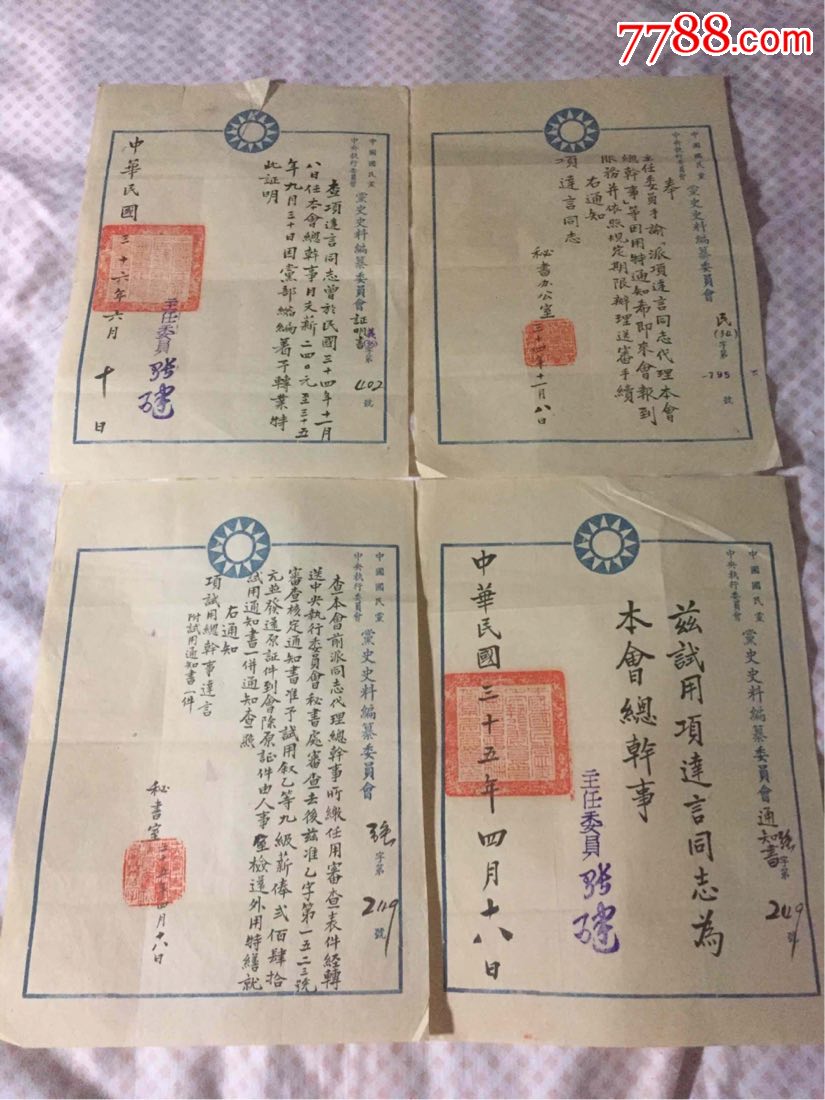 7788.com
中國國民黨
中央執行委員會
黨史史料編纂委員會
民(34)字第
-795
號
奉
主任委員手諭「派項達言同志代理本會
總幹事」等因用特通知希即來會報到
服務并依照規定期限辦理送審手續
右通知
項達言同志
秘書办公室 三十四年十一月八日
中國國民黨
中央執行委員會
黨史史料編纂委員會
証明書
字第
402
號
查項達言同志曾於民國三十四年十一月
八日任本會總幹事月支薪二四〇元至三十五
年九月三十日因黨部縮編著予轉業特
此証明
主任委員
中華民國三十六年六月十日
中國國民黨
中央執行委員會
黨史史料編纂委員會通知書
字第
249
號
兹試用項達言同志為
本會總幹事
主任委員
中華民國三十五年四月十八日
中國國民黨
中央執行委員會
黨史史料編纂委員會
字第
249
號
查本會前派同志代理總幹事所繳任用審查表件經轉
送中央執行委員會秘書處審查去後兹准乙字第一五二三號
審查核定通知書准予試用叙乙等九級薪俸弍佰肆拾
元並發還原証件到會除原証件由人事室檢送外用特繕就
試用通知書一併通知查照
右通知
項試用總幹事達言
附試用通知書一件
秘書室 三十五年四月十八日